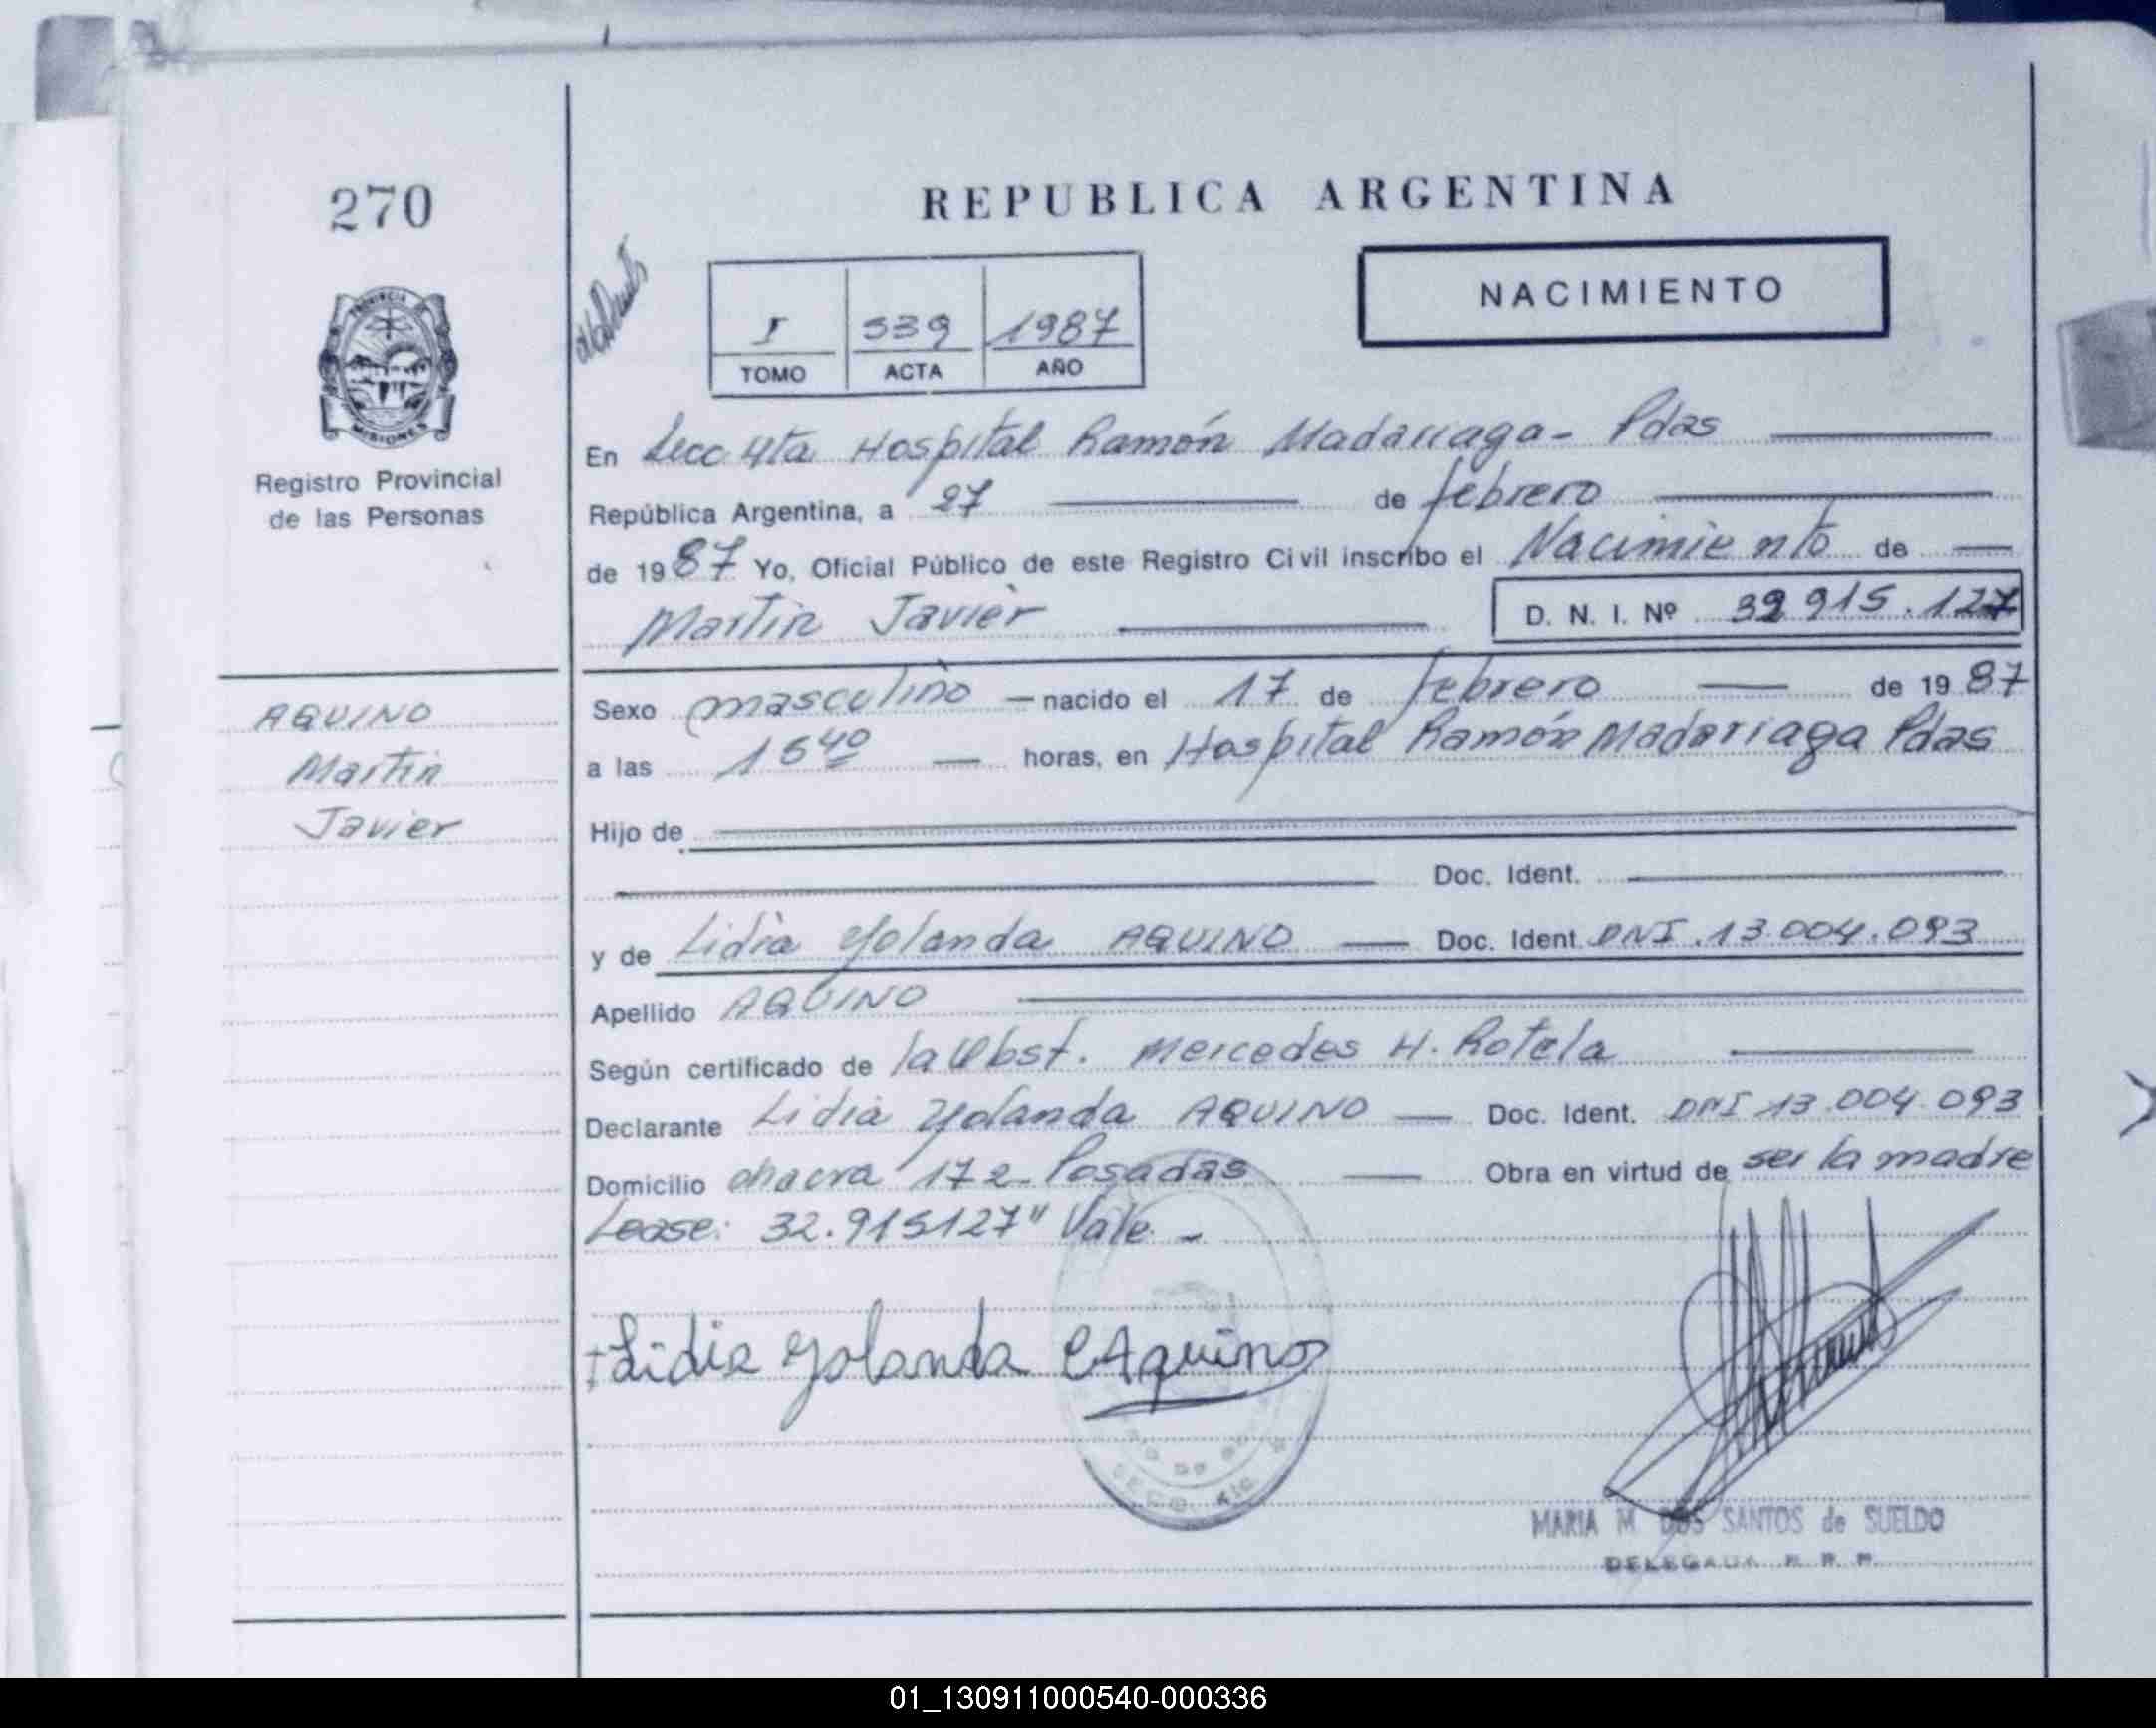 270
REPUBLICA ARGENTINA
NACIMIENTO
I 539 1987
TOMO ACTA AÑO
PROVINCIA DE
MISIONES
Registro Provincial
de las Personas
En Secc 4ta Hospital Ramón Madariaga - Pdas
República Argentina, a 27 de febrero
de 1987 Yo, Oficial Público de este Registro Civil inscribo el Nacimiento de
Martin Javier D. N. I. Nº 32 915.127
AQUINO
Martin
Javier
Sexo masculino nacido el 17 de febrero de 1987
a las 15 40 horas, en Hospital Ramón Madariaga Pdas
Hijo de
Doc. Ident.
y de Lidia Yolanda AQUINO Doc. Ident. DNI.13.004.093
Apellido AQUINO
Según certificado de la Obst. Mercedes H. Rotela
Declarante Lidia Yolanda AQUINO Doc. Ident. DNI 13.004.093
Domicilio chacra 172 - Posadas Obra en virtud de ser la madre
Lease: 32.915127" Vale -
Lidia Yolanda Aquino
MARIA M. DOS SANTOS de SUELDO
DELEGADA R. P. P.
01_130911000540-000336